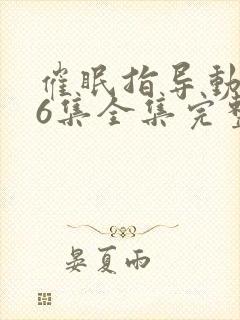 催眠指导动
6集全集完整
晏夏雨